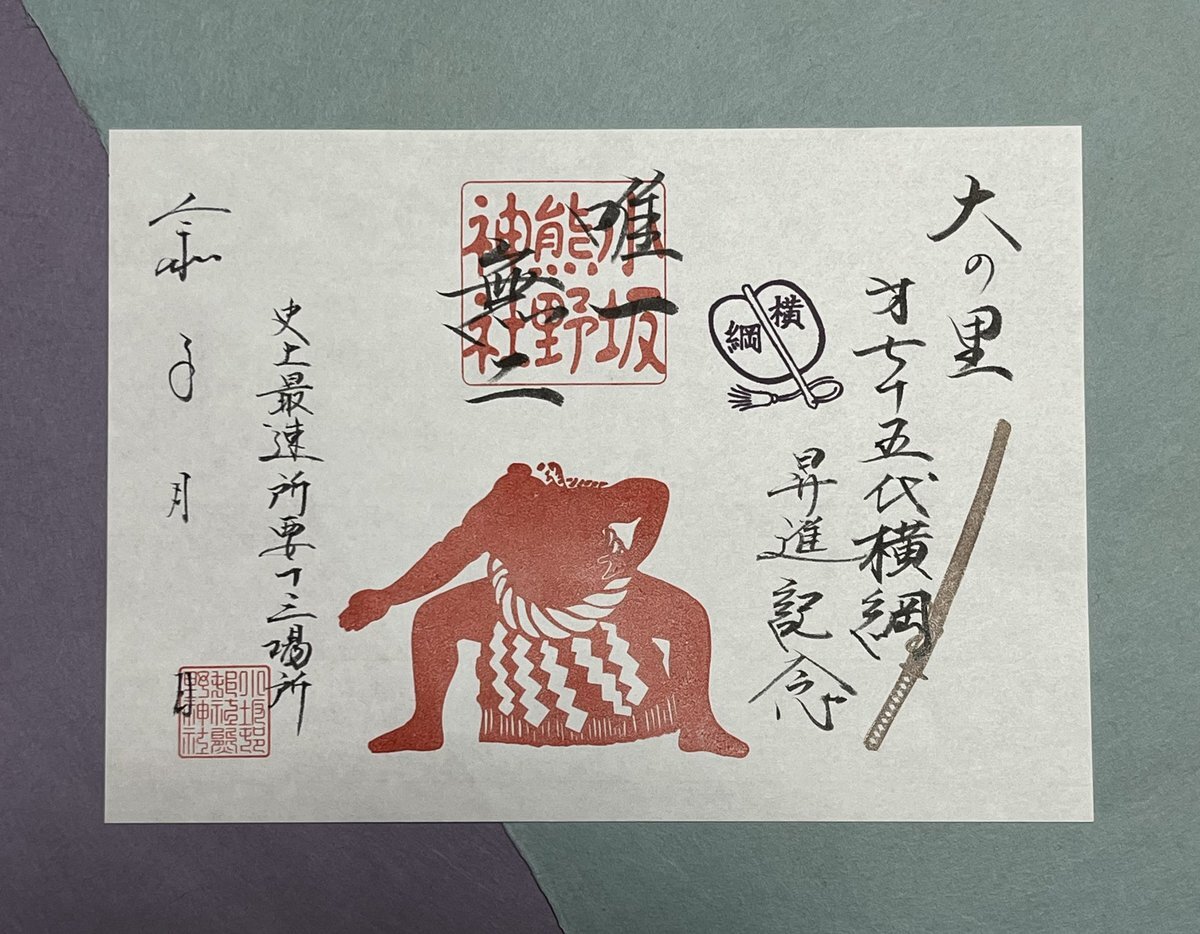 大の里
才七十五代横綱
昇進記念
横綱
唯一
無二
小坂
熊野
神社
史上最速所要十三場所
令和 年 月 日
小坂邨
邨社熊
野神社